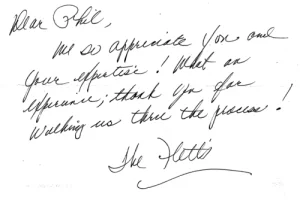 Dear Phil,
We so appreciate you and
your expertise! What an
experience; thank you for
walking us thru the process!
The Fletts